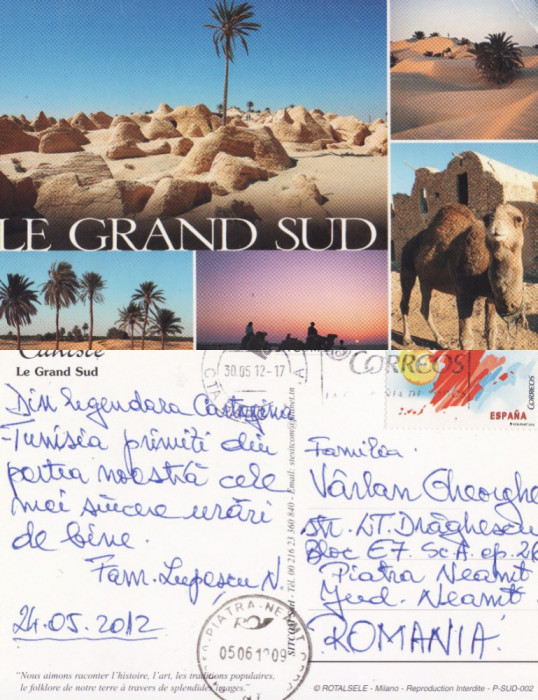 LE GRAND SUD
Tunisie
Le Grand Sud
30.05.12-17
CORREOS
CORREOS
ESPAÑA
Din legendara Cartagina
-Tunisia primiti din
partea noastră cele
mai sincere urări
de bine.
Fam. Lupescu N.
24.05.2012
SITCOM Sarl - Tél. 00 216 23 360 840 - Email:
Familia
Vârlan Gheorghe
str. LT. Drăghescu
Bloc E7. Sc.A. ap.26
Piatra Neamț
Jud. Neamț
ROMANIA
PIATRA-NEAMT
"Nous aimons raconter l'histoire, l'art, les traditions populaires,
le folklore de notre terre à travers de splendides images."
© ROTALSELE - Milano - Reproduction Interdite - P-SUD-002